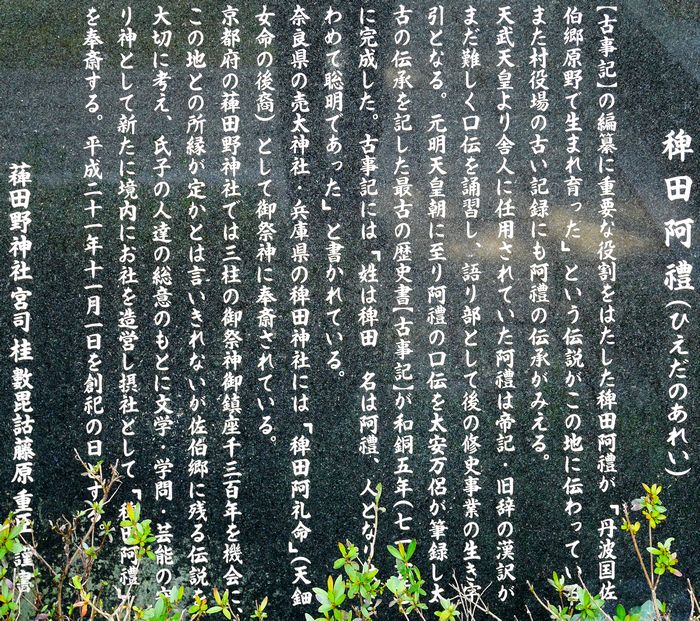 稗田阿禮(ひえだのあれい)
【古事記】の編纂に重要な役割をはたした稗田阿禮が「丹波国佐
伯郷原野で生まれ育った」という伝説がこの地に伝わってい
また村役場の古い記録にも阿禮の伝承がみえる。
天武天皇より舎人に任用されていた阿禮は帝記・旧辞の漢訳が
まだ難しく口伝を誦習し、語り部として後の修史事業の生き字
引となる。元明天皇朝に至り阿禮の口伝を太安万侶が筆録し太
古の伝承を記した最古の歴史書【古事記】が和銅五年(七一
に完成した。古事記には「姓は稗田 名は阿禮、人となり
わめて聡明であった」と書かれている。
奈良県の売太神社・兵庫県の稗田神社には「稗田阿礼命」(天鈿
女命の後裔)として御祭神に奉斎されている。
京都府の薭田野神社では三柱の御祭神御鎮座千三百年を機会に、
この地との所縁が定かとは言いきれないが佐伯郷に残る伝説を
大切に考え、氏子の人達の総意のもとに文学・学問・芸能の
り神として新たに境内にお社を造営し摂社として、「稗田阿禮」
を奉斎する。平成二十一年十一月一日を創祀の日 する。
薭田野神社宮司 桂 數毘詁藤原重 謹書